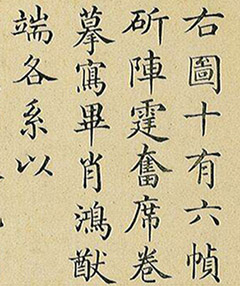 右圖十有六幀
斫陣霆奮席卷
摹寫畢肖鴻猷
端各系以